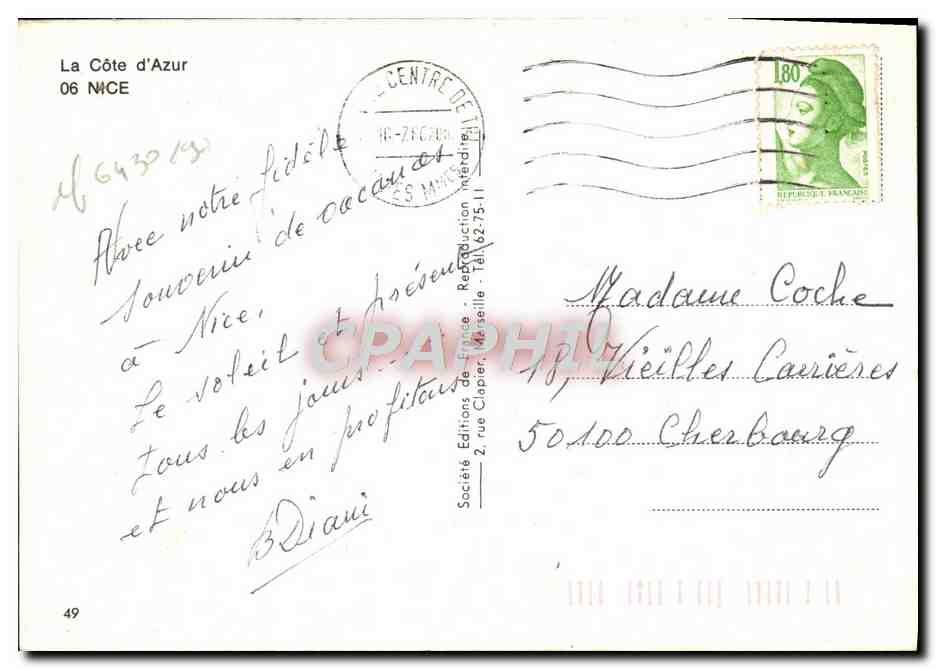 La Côte d'Azur
06 NICE
CENTRE DE TRI
1,80
POSTES
REPUBLIQUE FRANÇAISE
6430
Avec notre fidèle
souvenir de vacances
à Nice.
Le soleil est présent
tous les jours
et nous en profitons
B Diani
Société Editions de France - Reproduction interdite
2, rue Clapier, Marseille - Tél. 62-75-11
Madame Coche
18, Vieilles Carrières
50100 Cherbourg
CPAPHIL
49